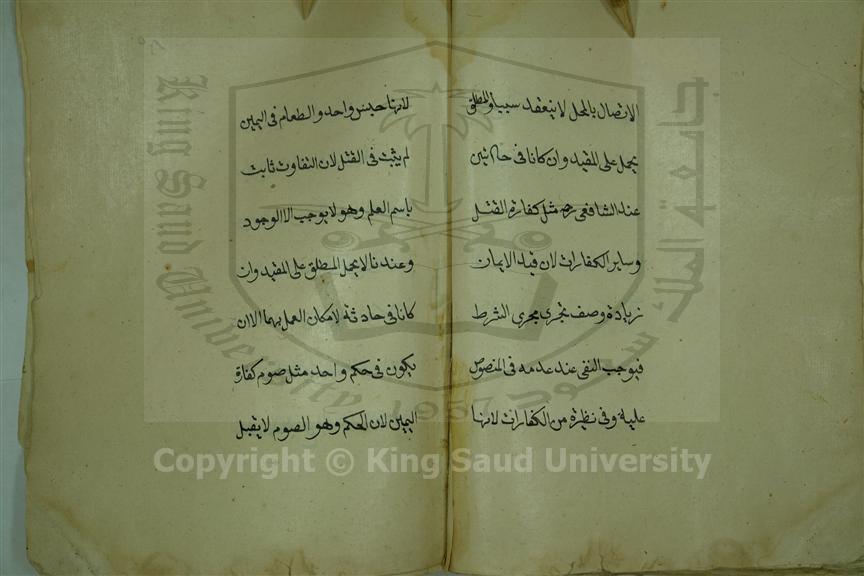 الاتصال بالمحل لا ينعقد سببا والمطلق
يحمل على المقيد وان كانا في حادثتين
عند الشافعي رحمه مثل كفارة القتل
وساير الكفارات لان قيد الايمان
زيادة وصف يجري مجرى الشرط
فيوجب النفي عند عدمه في المنصوص
عليه وفي نظيره من الكفارات لانها
لانها جنس واحد والطعام في اليمين
لم يثبت في القتل لان التفاوت ثابت
باسم العلم وهو لا يوجب الا الوجود
وعندنا لا يحمل المطلق على المقيد وان
كانا في حادثة لامكان العمل بهما الا ان
يكون في حكم واحد مثل صوم كفارة
اليمين لان الحكم وهو الصوم لا يقبل
جامعة الملك سعود
King Saud University
1957
Copyright © King Saud University